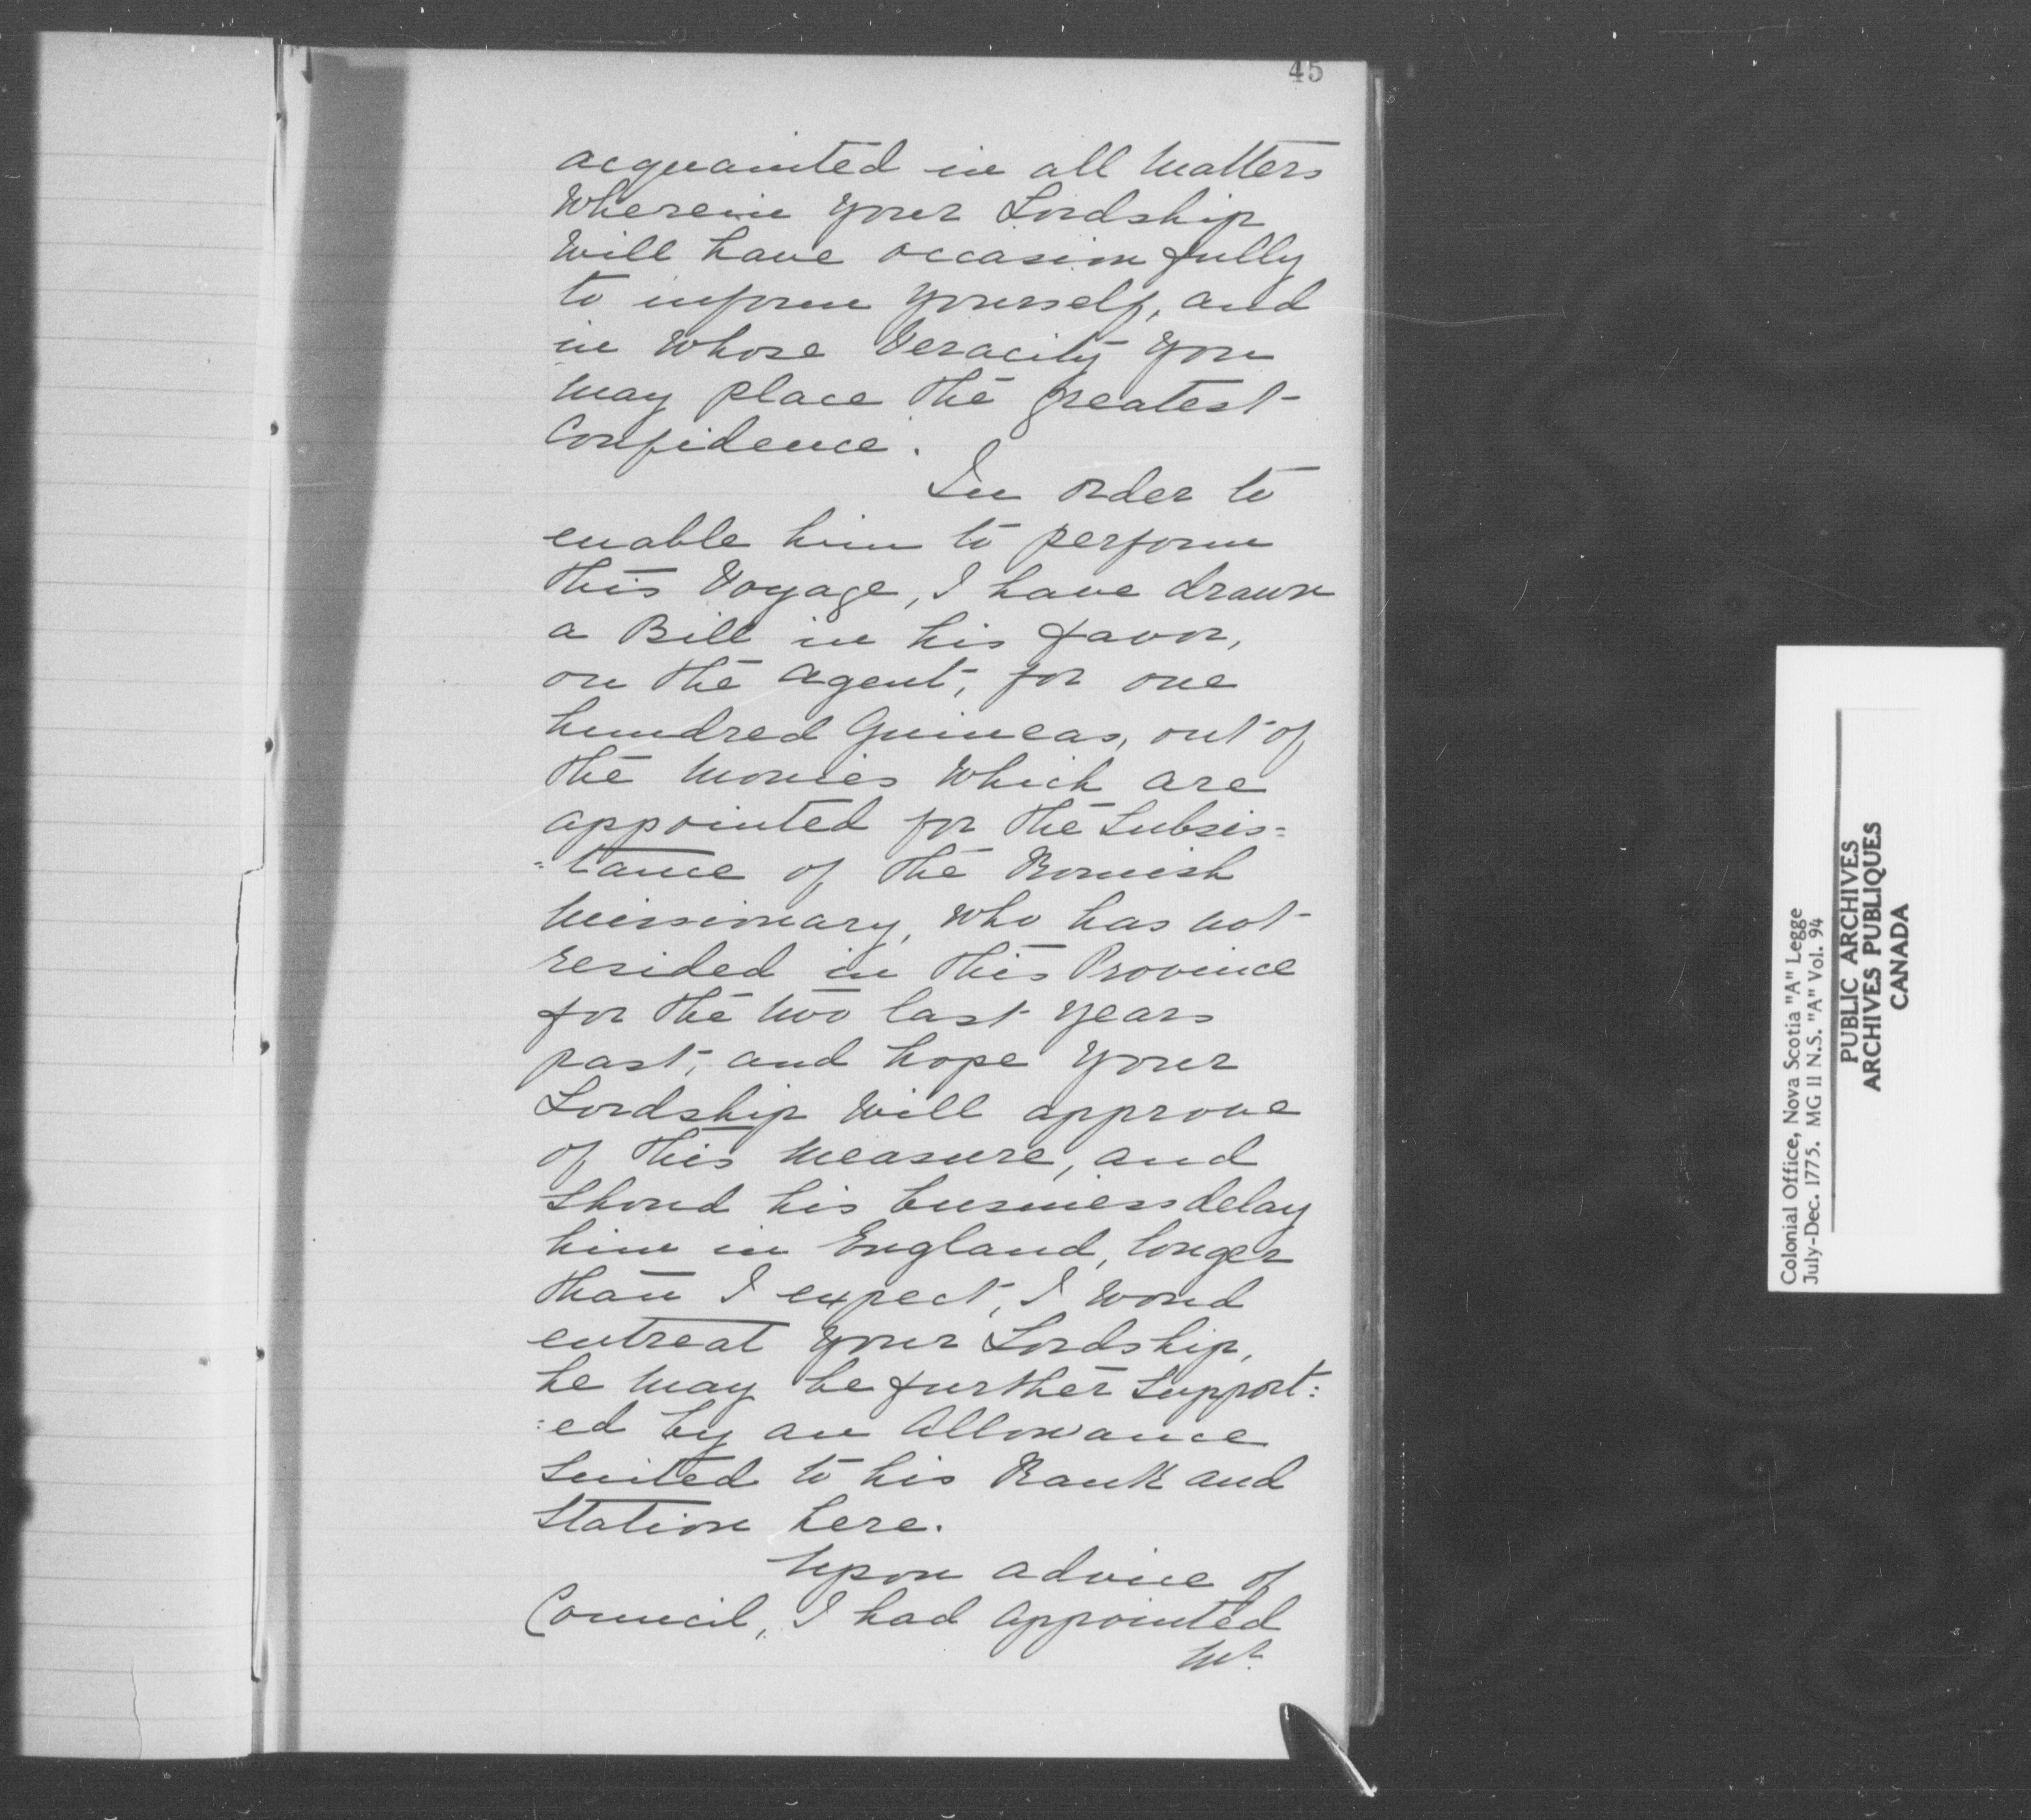 45
acquainted in all matters
Wherein your Lordship
Will have occasion fully
to inform yourself, and
in whose Veracity you
may place the greatest
Confidence.
In order to
enable him to perform
this Voyage, I have drawn
a Bill in his favor,
on the Agent, for one
hundred Guineas, out of
the monies which are
appointed for the Subsis=
=tance of the Romish
Missionary, who has not
resided in this Province
for the two last years
past, and hope your
Lordship will approve
of this measure, and
Shoud his business delay
him in England, longer
than I expect, I woud
entreat your Lordship,
he may be further Support:
:ed by an Allowance
Suited to his Rank and
Station here.
Upon advice of
Council, I had appointed
Mr.
Colonial Office, Nova Scotia "A" Legge
July-Dec. 1775. MG 11 N.S. "A" Vol. 94
PUBLIC ARCHIVES
ARCHIVES PUBLIQUES
CANADA